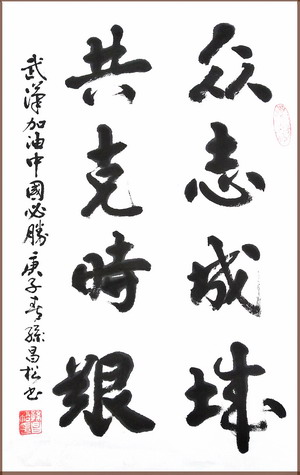 众志成城
共克時艱
武漢加油中國必勝 庚子春孫昌松书